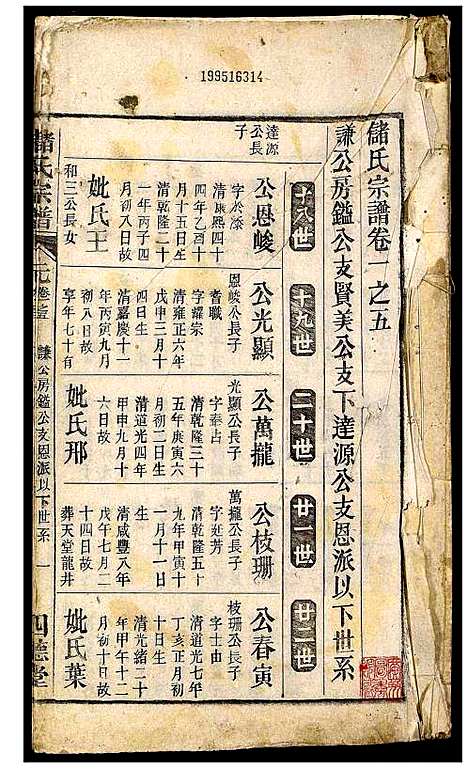 199515314
儲氏宗譜卷一之五
謙公房鑑公支賢美公支下達源公支恩派以下世系
十八世
十九世
二十世
廿一世
廿二世
達源
公長
子
公恩峻
字於漆
清康熙四十
四年乙酉十
月十五日生
清乾隆二十
一年丙子四
月初八日故
妣氏王
和三公長女
公光顯
恩峻公長子
字耀宗
耆職
清雍正六年
戊申三月十
四日生
清嘉慶十一
年丙寅九月
初八日故
享年七十有
公萬攏
光顯公長子
字奉占
清乾隆三十
五年庚寅六
月初二日生
清道光四年
甲申九月十
六日故
妣氏邢
公枝珊
萬攏公長子
字延芳
清乾隆五十
九年甲寅十
一月十一日
生
清咸豐八年
戊午七月二
十四日故
葬天堂龍井
公春寅
枝珊公長子
字士由
清道光七年
丁亥正月初
十日生
清光緒二十
年甲午十二
月初十日故
妣氏葉
儲氏宗譜
元卷之五
謙公房鑑公支恩派以下世系
一
四德堂